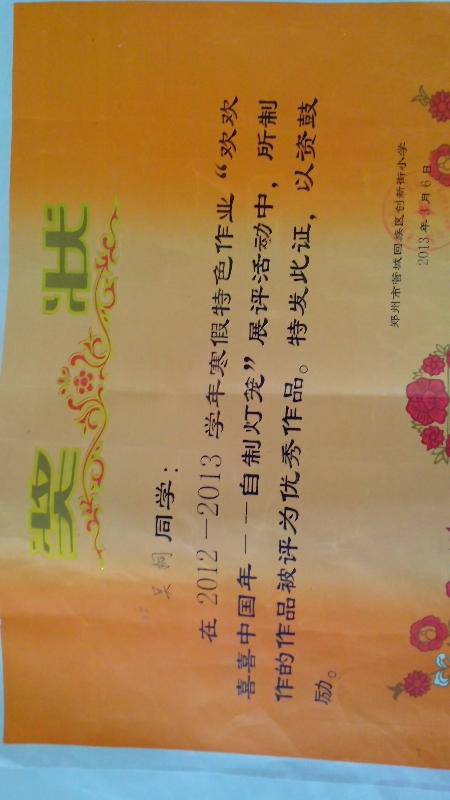 奖 状
吴桐 同学：
在 2012－2013 学年寒假特色作业“欢欢
喜喜中国年——自制灯笼”展评活动中，所制
作的作品被评为优秀作品。特发此证，以资鼓
励。
郑州市管城回族区创新街小学
2013 年 3 月 6 日